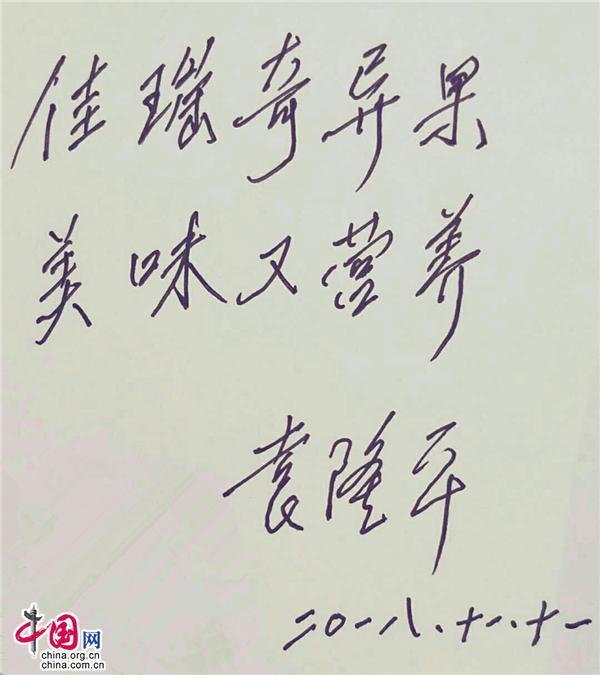 佳瑶奇异果
美味又营养
袁隆平
二〇一八、十一、十一
中国网
china.org.cn
china.com.cn